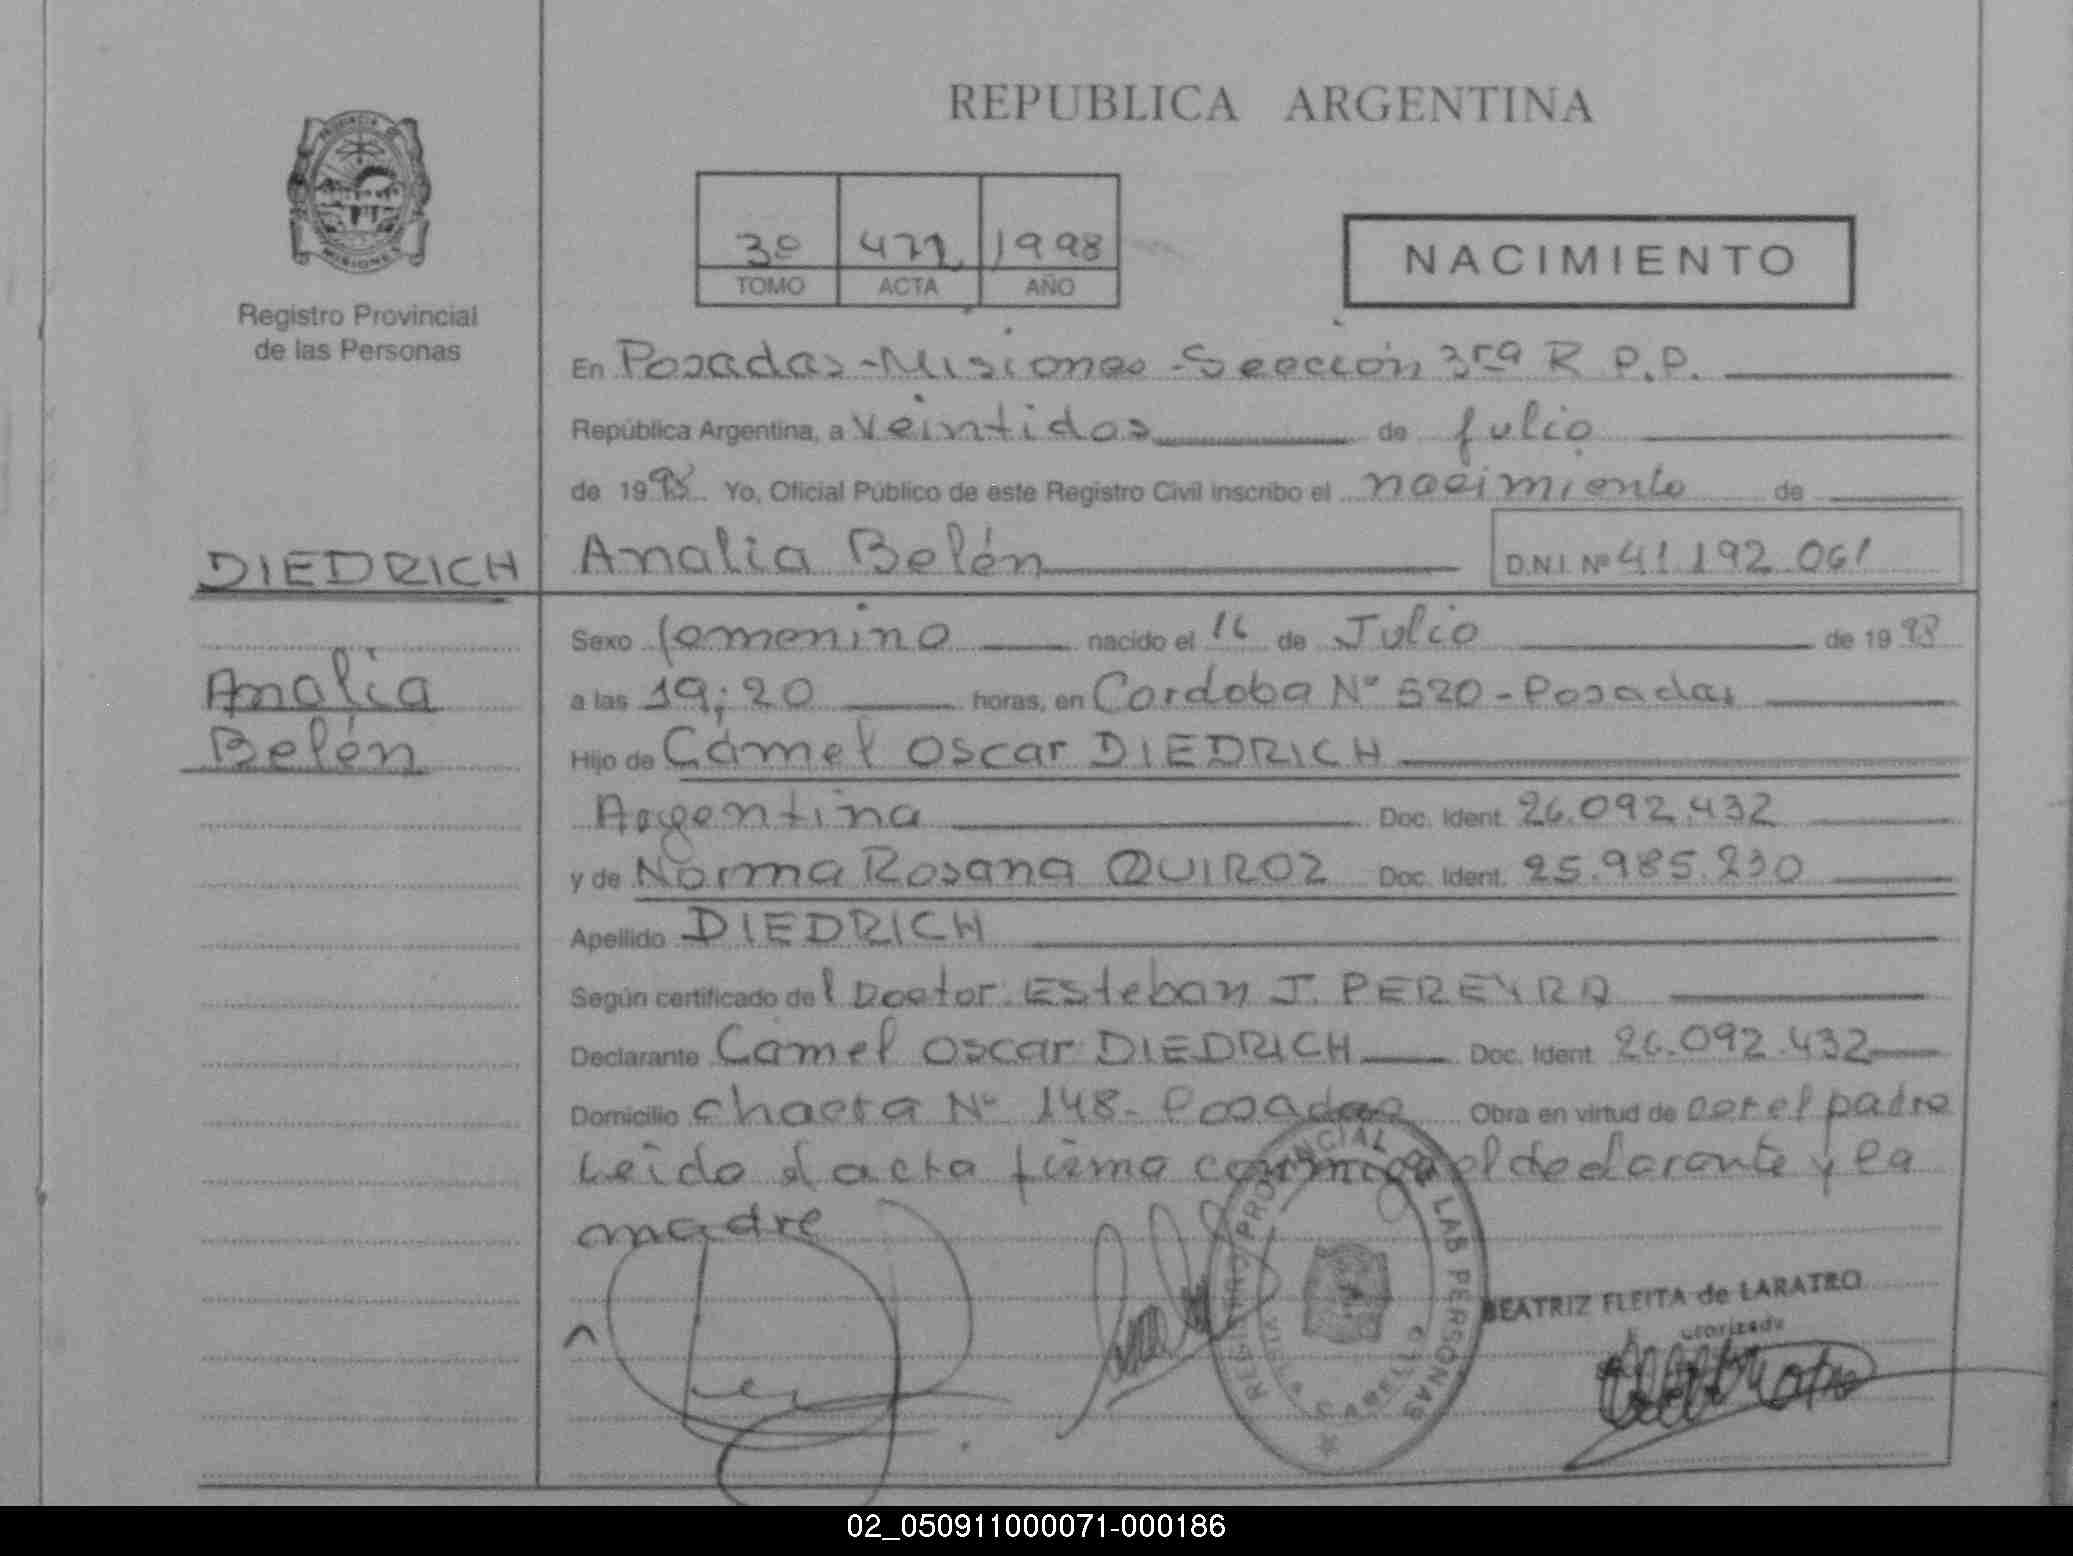 REPUBLICA ARGENTINA
PROVINCIA DE
MISIONES
Registro Provincial
de las Personas
3º 471 1998
TOMO ACTA AÑO
NACIMIENTO
En Posadas-Misiones-Sección 3ra R P.P.
República Argentina, a Veintidos de Julio
de 1998 Yo, Oficial Público de este Registro Civil inscribo el nacimiento de
DIEDRICH Analia Belén D.N.I. Nº 41.192.061
Sexo femenino nacido el 16 de Julio de 1998
Analia
a las 19:20 horas, en Cordoba Nº 520-Posadas
Belén
Hijo de Camel Oscar DIEDRICH
Argentina Doc. Ident. 26.092.432
y de Norma Rosana QUIROZ Doc. Ident. 25.985.230
Apellido DIEDRICH
Según certificado del Doctor Esteban J. PEREYRA
Declarante Camel Oscar DIEDRICH Doc. Ident. 26.092.432
Domicilio chacra Nº 148-Posadas Obra en virtud de ser el padre
Leido el acta firma conmigo el declarante y la
madre
REGISTRO PROVINCIAL DE LAS PERSONAS
VILLA CABELLO
BEATRIZ FLEITA de LARATRO
02_050911000071-000186